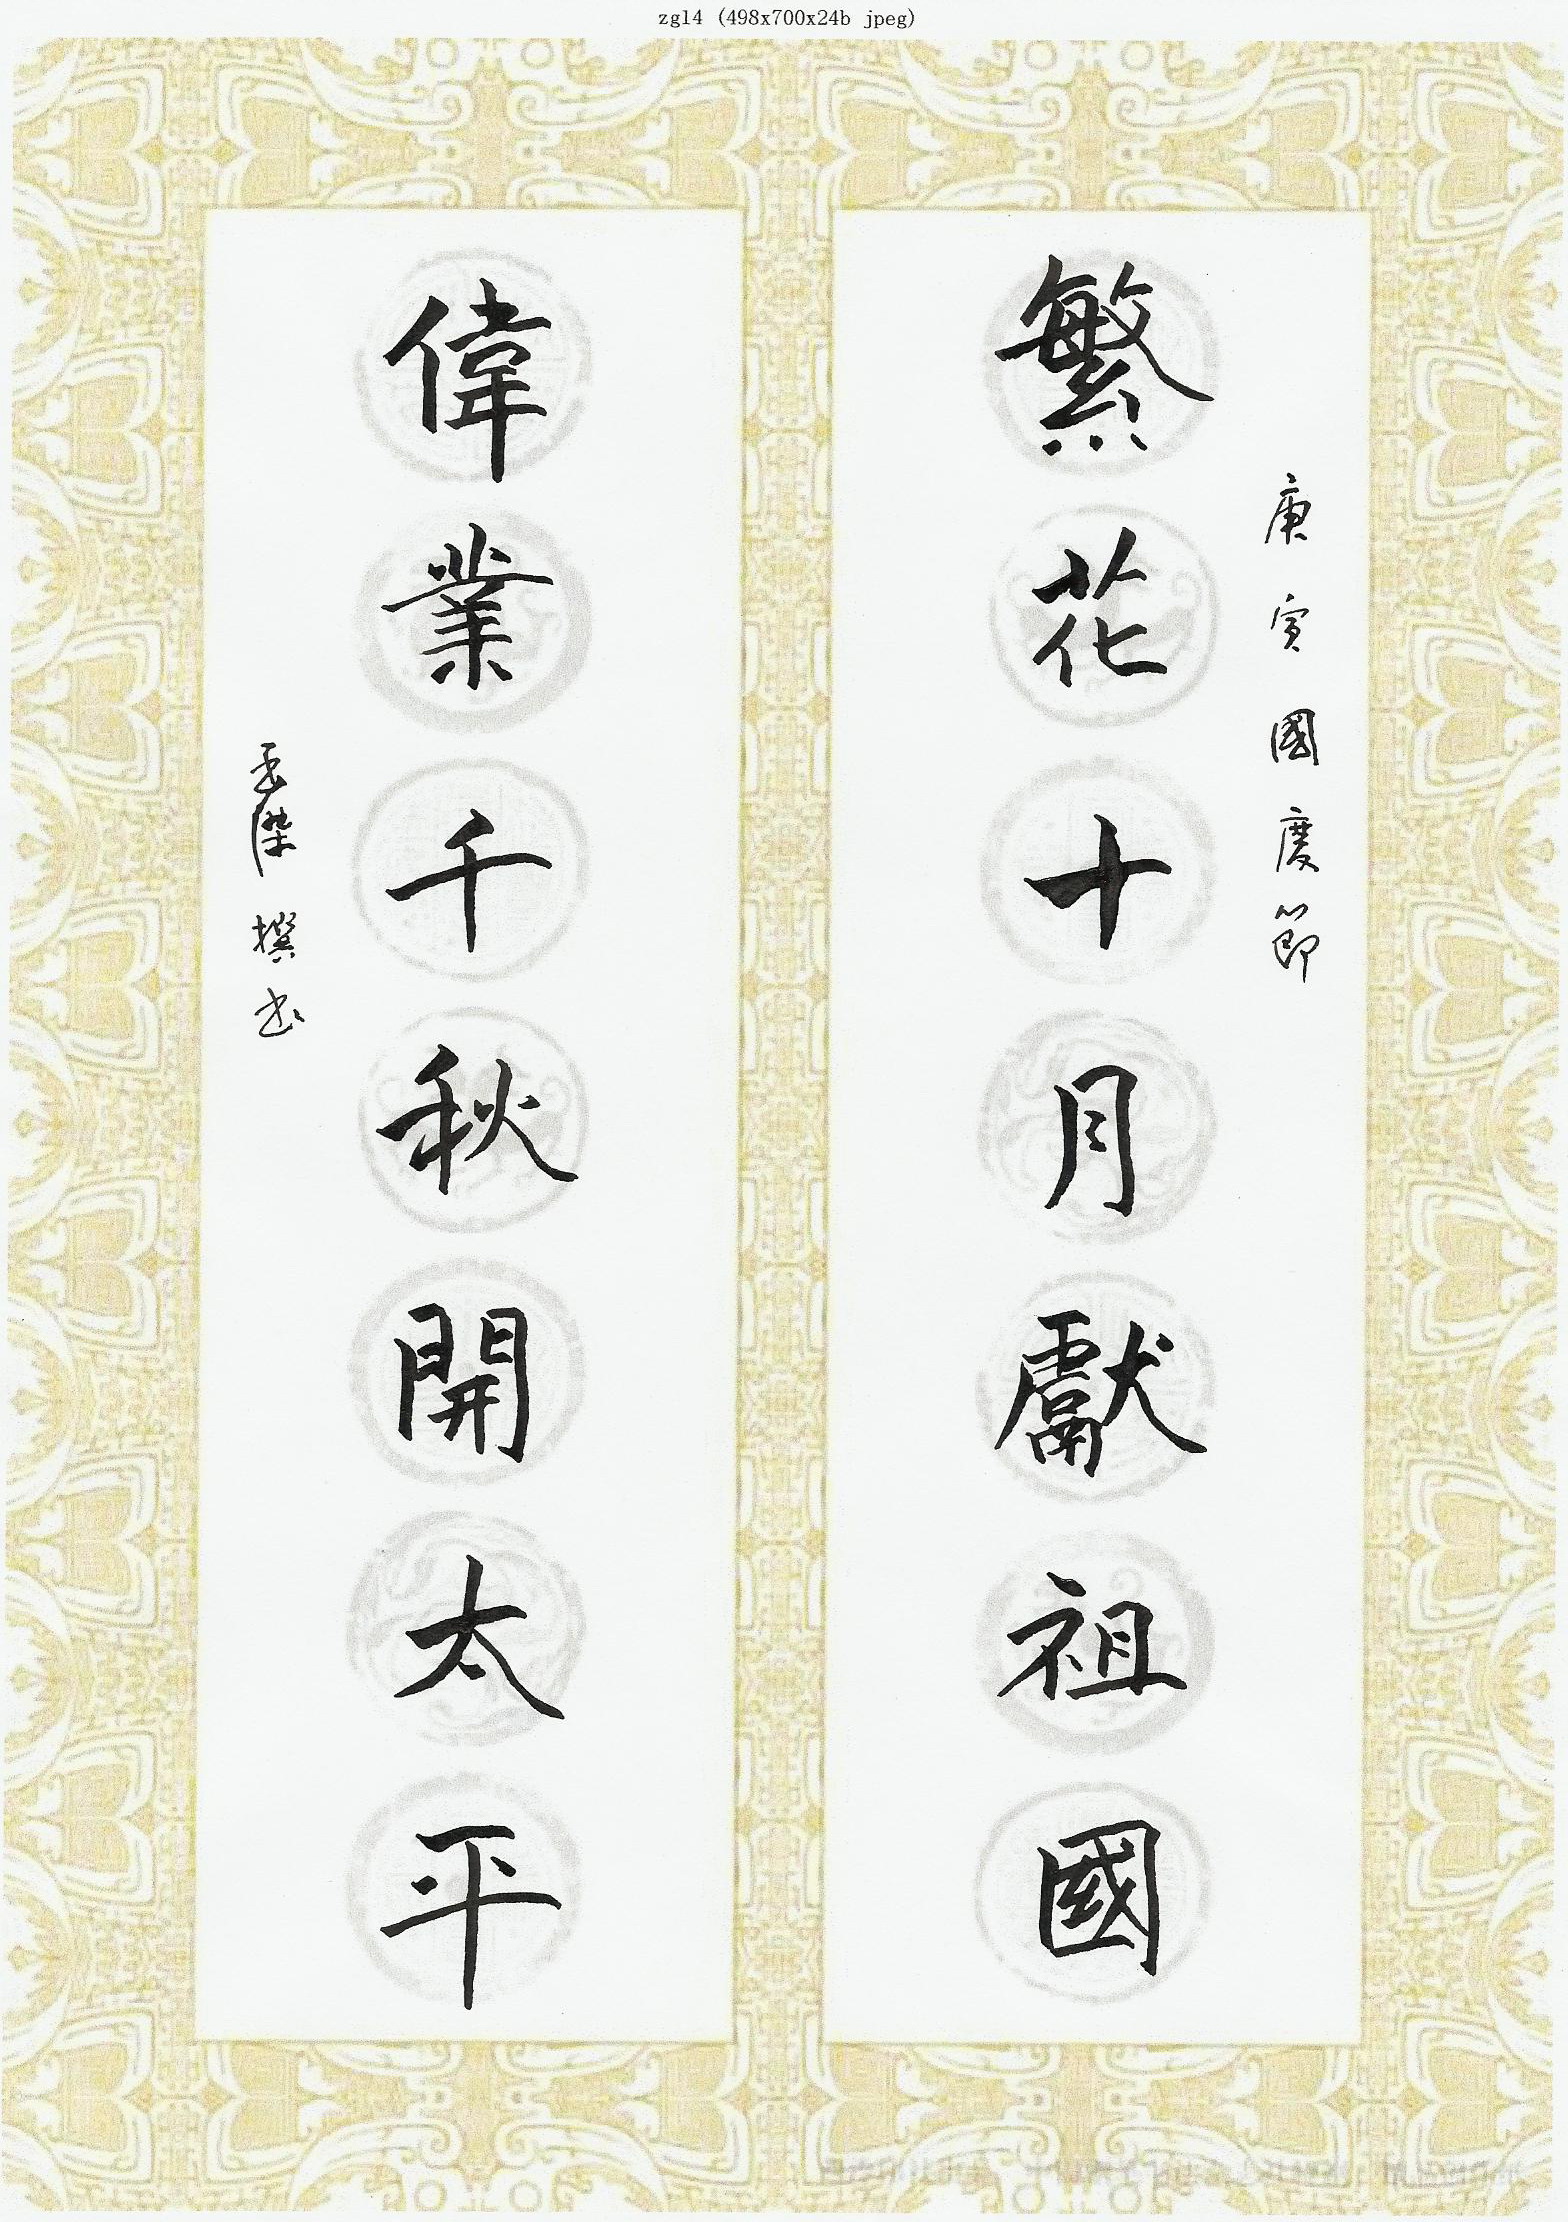 zg14 (498x700x24b jpeg)
庚寅國慶節
繁花十月獻祖國
偉業千秋開太平
撰书